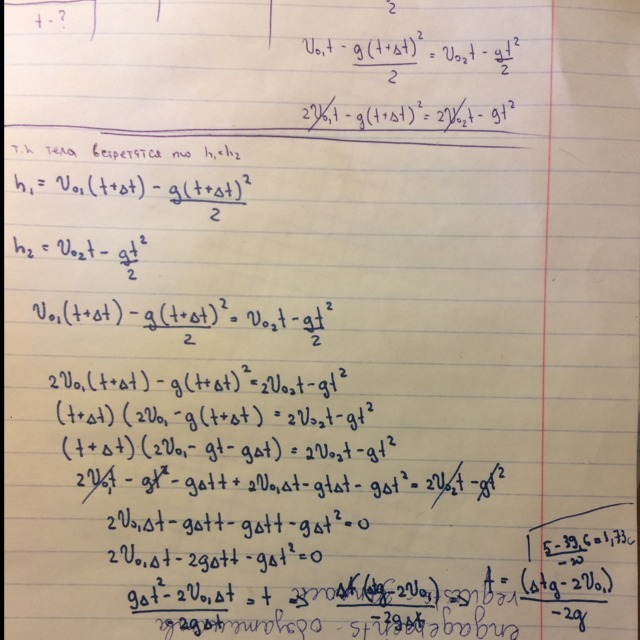 t-?
2
V₀₁t - g(t+Δt)²/2 = V₀₂t - gt²/2
2V₀₁t - g(t+Δt)² = 2V₀₂t - gt²
т.к тела встретятся то h₁=h₂
h₁ = V₀₁(t+Δt) - g(t+Δt)²/2
h₂ = V₀₂t - gt²/2
V₀₁(t+Δt) - g(t+Δt)²/2 = V₀₂t - gt²/2
2V₀₁(t+Δt) - g(t+Δt)² = 2V₀₂t - gt²
(t+Δt)(2V₀₁ - g(t+Δt) = 2V₀₂t - gt²
(t+Δt)(2V₀₁ - gt - gΔt) = 2V₀₂t - gt²
2V₀₁t - gt² - gΔtt + 2V₀₁Δt - gtΔt - gΔt² = 2V₀₂t - gt²
2V₀₁Δt - gΔtt - gΔtt - gΔt² = 0
5-39,6 = 1,73с
2V₀₁Δt - 2gΔtt - gΔt² = 0
gΔt² - 2V₀₁Δt / -2gΔt = t => Δt(Δtg - 2V₀₁) / -2gΔt => t = (Δtg - 2V₀₁) / -2g